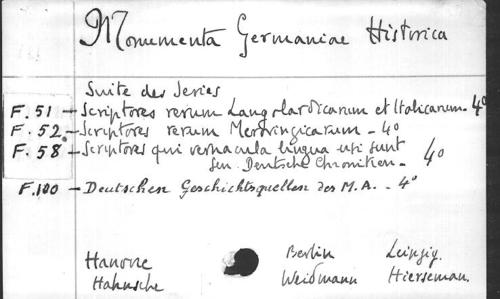 Monumenta Germaniae Historica
Suite des Series
F. 51 - Scriptores rerum Langolardicarum et Italicarum - 4°
F. 52 - Scriptores rerum Merovingicarum - 4°
F. 58 - Scriptores qui vernacula lingua usi sunt
seu Deutsche Chroniken - 4°
F. 100 - Deutschen Geschichtsquellen des M.A. - 4°
Hanovre Berlin Leipzig.
Hahnsche Weidmann Hierseman.